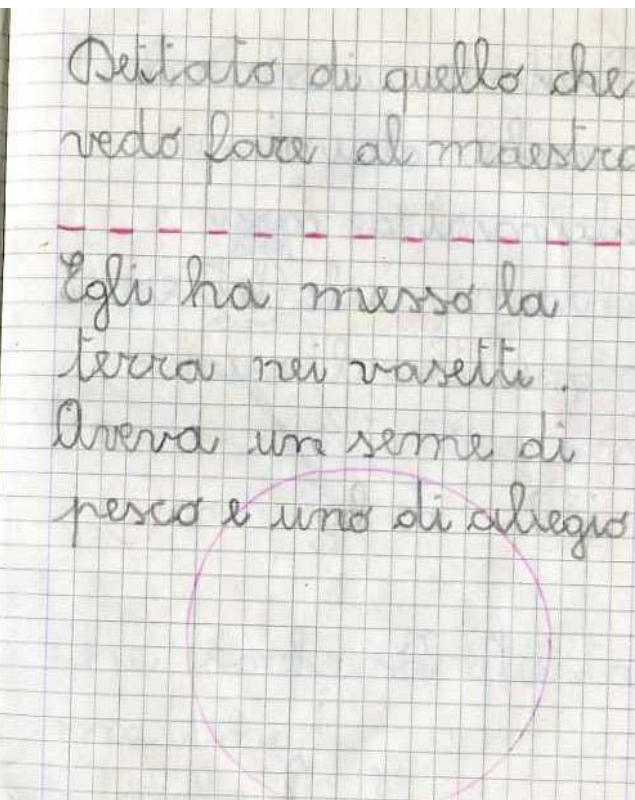 Dettato di quello che
vedo fare al maestro
Egli ha messo la
terra nei vasetti.
Aveva un seme di
pesco e uno di